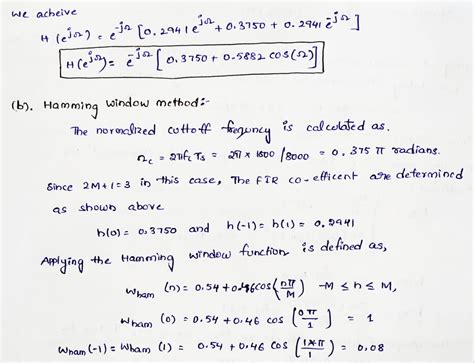 we acheive
H(e^jΩ) = e^-jΩ [0.2941e^jΩ + 0.3750 + 0.2941 e^-jΩ]
H(e^jΩ) = e^-jΩ [0.3750 + 0.5882 cos(Ω)]
(b). Hamming window method:-
The normalized cuttoff frequncy is calculated as.
Ωc = 2πfcTs = 2π × 1500/8000 = 0.375 π radians.
Since 2M+1=3 in this case, The FIR co-efficent are determined
as shown above
h(0) = 0.3750 and h(-1) = h(1) = 0.2941
Applying the Hamming window function is defined as,
Wham (n) = 0.54 + 0.46cos(nπ/M) -M ≤ n ≤ M,
Wham (0) = 0.54 + 0.46 cos (0π/1) = 1
Wham (-1) = Wham (1) = 0.54 + 0.46 cos (1×π/1) = 0.08